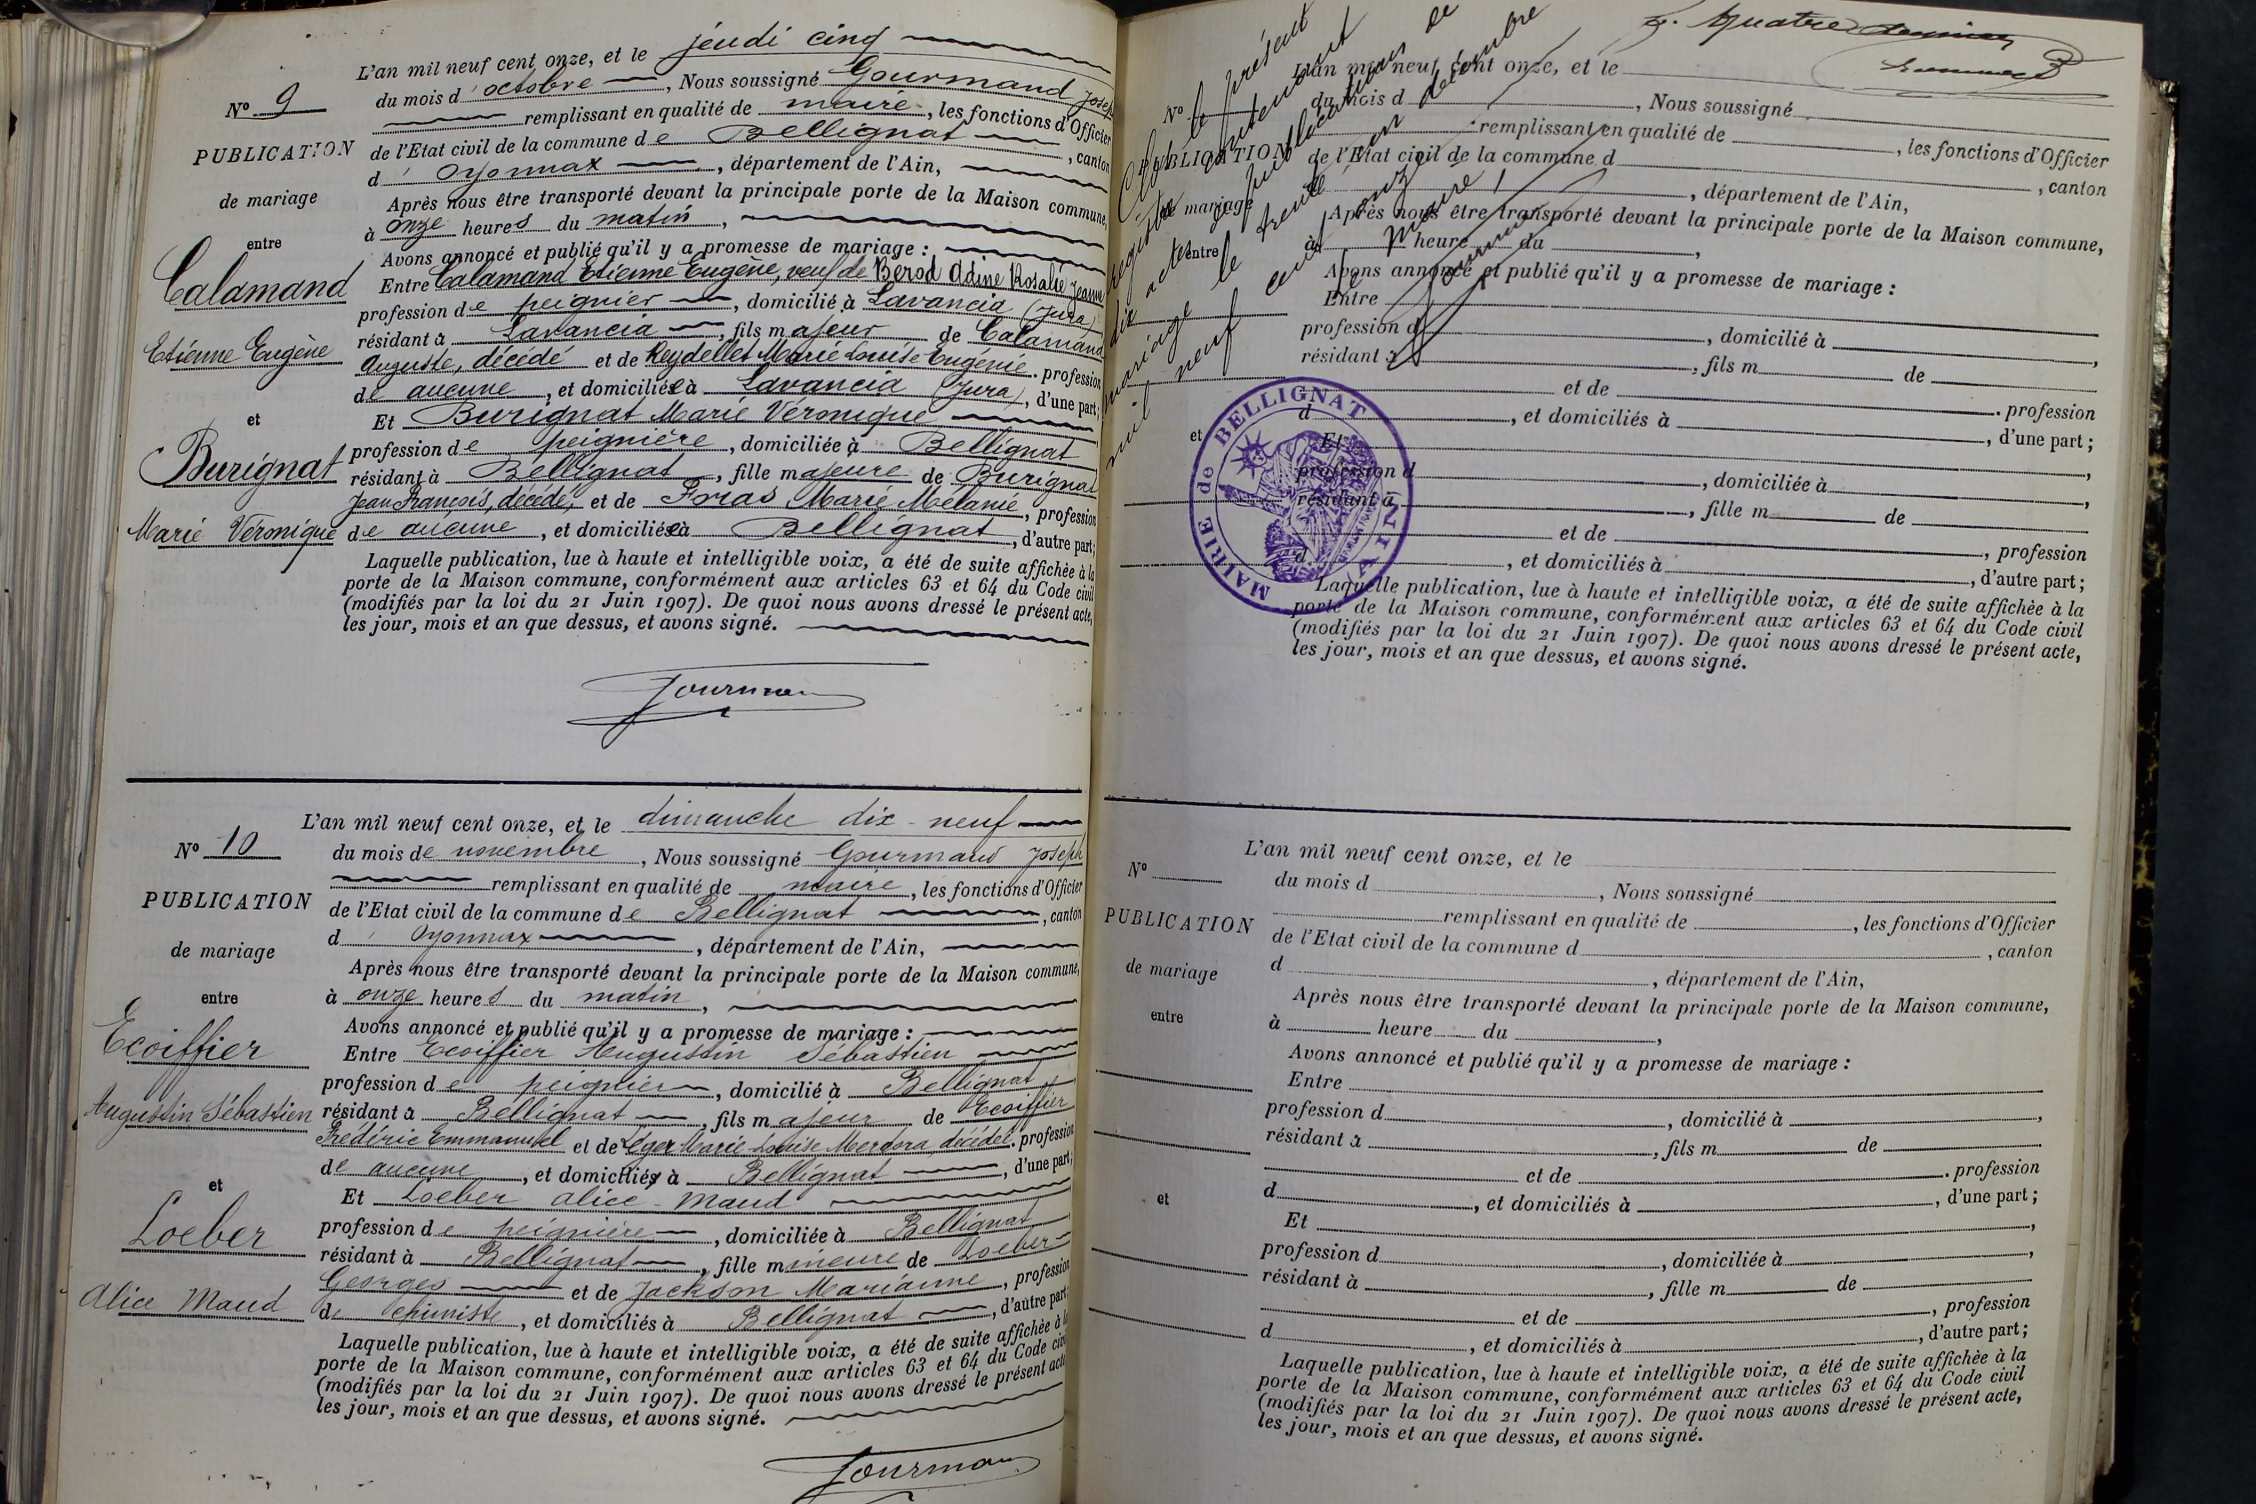 L'an mil neuf cent onze, et le jeudi cinq
N° 9
du mois d'octobre, Nous soussigné Gourmand Joseph
remplissant en qualité de maire, les fonctions d'Officier
PUBLICATION
de l'Etat civil de la commune de Bellignat, canton
d'Oyonnax, département de l'Ain,
de mariage
Après nous être transporté devant la principale porte de la Maison commune,
à onze heures du matin,
entre
Avons annoncé et publié qu'il y a promesse de mariage :
Calamand
Entre Calamand Etienne Eugène, veuf de Bérod Adine Rosalie Jeanne
profession de peignier, domicilié à Lavancia (Jura)
Etienne Eugène
résidant à Lavancia, fils majeur de Calamand
Auguste, décédé et de Reydellet Marie Louise Eugénie. profession
de aucune, et domiciliée à Lavancia (Jura), d'une part;
et
Et Burignat Marie Véronique
profession de peignière, domiciliée à Bellignat
Burignat
résidant à Bellignat, fille majeure de Burignat
Jean François, décédé, et de Foras Marie Mélanie, profession
Marie Véronique
de aucune, et domiciliée à Bellignat, d'autre part;
Laquelle publication, lue à haute et intelligible voix, a été de suite affichée à la
porte de la Maison commune, conformément aux articles 63 et 64 du Code civil
(modifiés par la loi du 21 Juin 1907). De quoi nous avons dressé le présent acte,
les jour, mois et an que dessus, et avons signé.
Gourmand
L'an mil neuf cent onze, et le dimanche dix-neuf
N° 10
du mois de novembre, Nous soussigné Gourmand Joseph
remplissant en qualité de maire, les fonctions d'Officier
PUBLICATION
de l'Etat civil de la commune de Bellignat, canton
d'Oyonnax, département de l'Ain,
de mariage
Après nous être transporté devant la principale porte de la Maison commune,
entre
à onze heures du matin,
Avons annoncé et publié qu'il y a promesse de mariage :
Ecoiffier
Entre Ecoiffier Augustin Sébastien
profession de peignier, domicilié à Bellignat
Augustin Sébastien
résidant à Bellignat, fils majeur de Ecoiffier
Frédéric Emmanuel et de Léger Marie-Louise décédée. profession
de aucune, et domiciliés à Bellignat, d'une part;
et
Et Loeber Alice-Maud
Loeber
profession de peignière, domiciliée à Bellignat
résidant à Bellignat, fille mineure de Loeber
Georges et de Jackson Marianne, profession
Alice Maud
de chimiste, et domiciliés à Bellignat, d'autre part;
Laquelle publication, lue à haute et intelligible voix, a été de suite affichée à la
porte de la Maison commune, conformément aux articles 63 et 64 du Code civil
(modifiés par la loi du 21 Juin 1907). De quoi nous avons dressé le présent acte
les jour, mois et an que dessus, et avons signé.
Gourmand
quatre
Clos le présent
registre contenant
dix actes publications de
mariage le trente un décembre
mil neuf cent onze
Le Maire,
Gourmand
L'an mil neuf cent onze, et le
N°
du mois d, Nous soussigné
remplissant en qualité de, les fonctions d'Officier
PUBLICATION
de l'Etat civil de la commune d, canton
d, département de l'Ain,
de mariage
Après nous être transporté devant la principale porte de la Maison commune,
entre
à heure du,
Avons annoncé et publié qu'il y a promesse de mariage :
Entre
profession d, domicilié à,
résidant à, fils m de
et de. profession
d, et domiciliés à, d'une part;
et
Et,
profession d, domiciliée à,
résidant à, fille m de
et de, profession
d, et domiciliés à, d'autre part;
MAIRIE de BELLIGNAT
(AIN)
Laquelle publication, lue à haute et intelligible voix, a été de suite affichée à la
porte de la Maison commune, conformément aux articles 63 et 64 du Code civil
(modifiés par la loi du 21 Juin 1907). De quoi nous avons dressé le présent acte,
les jour, mois et an que dessus, et avons signé.
L'an mil neuf cent onze, et le
N°
du mois d, Nous soussigné
remplissant en qualité de, les fonctions d'Officier
PUBLICATION
de l'Etat civil de la commune d, canton
d, département de l'Ain,
de mariage
Après nous être transporté devant la principale porte de la Maison commune,
entre
à heure du,
Avons annoncé et publié qu'il y a promesse de mariage :
Entre
profession d, domicilié à,
résidant à, fils m de
et de. profession
et
d, et domiciliés à, d'une part;
Et,
profession d, domiciliée à,
résidant à, fille m de
et de, profession
d, et domiciliés à, d'autre part;
Laquelle publication, lue à haute et intelligible voix, a été de suite affichée à la
porte de la Maison commune, conformément aux articles 63 et 64 du Code civil
(modifiés par la loi du 21 Juin 1907). De quoi nous avons dressé le présent acte,
les jour, mois et an que dessus, et avons signé.